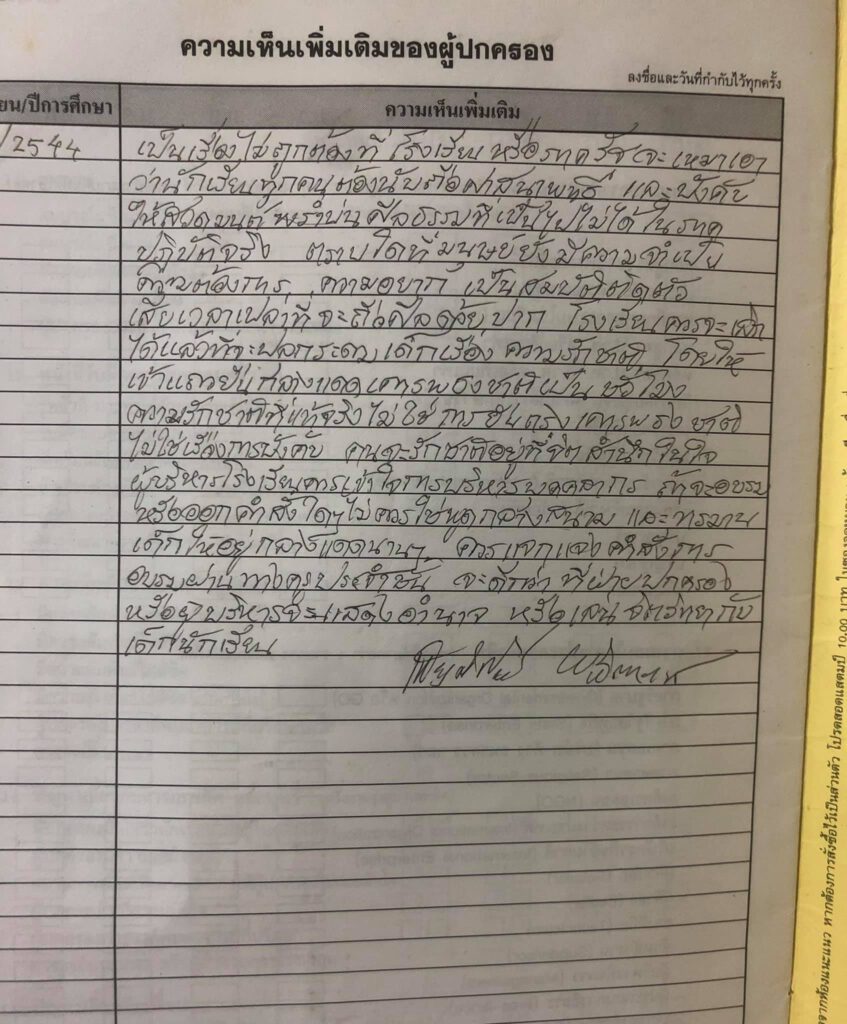 ความเห็นเพิ่มเติมของผู้ปกครอง
ลงชื่อและวันที่กำกับไว้ทุกครั้ง
ยน/ปีการศึกษา
ความเห็นเพิ่มเติม
/2544
เป็นเรื่องไม่ถูกต้องที่ โรงเรียน หรือภาครัฐ จะ เหมาเอา
ว่านักเรียนทุกคนต้องนับถือศาสนาพุทธ และบังคับ
ให้สวดมนต์ พร่ำบ่นศีลธรรมที่เป็นไปไม่ได้ ในภาค
ปฏิบัติจริง ตราบใดที่มนุษย์ยังมีความจำเป็น
ความต้องการ ความอยาก เป็นสมบัติติดตัว
เสียเวลาเปล่าที่จะถือศีลด้วยปาก โรงเรียนควรจะเลิก
ได้แล้วที่จะ เด็กเรื่อง ความรักชาติ โดยให้
เข้าแถวยืนกลางแดดเคารพธงชาติเป็นชั่วโมง
ความรักชาติที่แท้จริงไม่ใช่ การยืนตรงเคารพธงชาติ
ไม่ใช่เรื่องการบังคับ คนจะรักชาติอยู่ที่จิตสำนึกในใจ
ผู้บริหารโรงเรียนควรเข้าใจการบริหารบุคคลากร ถ้าจะอบรม
หรือออกคำสั่งใดๆไม่ควรใช้พูดกลางสนาม และทรมาน
เด็กให้อยู่กลางแดดนานๆ ควรแจกแจงคำสั่งการ
อบรมผ่านทางครูประจำชั้น จะดีกว่า ที่ฝ่ายปกครอง
หรือผู้บริหารจะแสดงอำนาจ หรือเล่นจิตวิทยากับ
เด็กนักเรียน
จากห้องแนะแนว หากต้องการสั่งซื้อไว้เป็นส่วนตัว โปรดสอดแสตมป์ 10.00 บาท